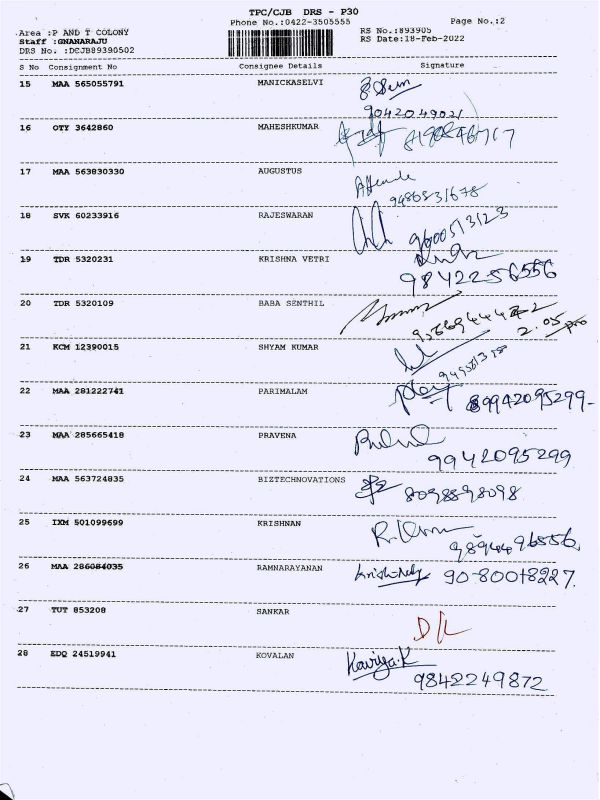 TPC/CJB DRS - P30
Phone No.:0422-3505555 Page No.:2
Area :P AND T COLONY RS No.:893905
Staff :GNANARAJU RS Date:18-Feb-2022
DRS No. :DCJB89390502
S No Consignment No Consignee Details Signature
15 MAA 565055791 MANICKASELVI
9042049021
16 OTY 3642860 MAHESHKUMAR
17 MAA 563830330 AUGUSTUS
9486531678
18 SVK 60233916 RAJESWARAN
9600513123
19 TDR 5320231 KRISHNA VETRI
9842256556
20 TDR 5320109 BABA SENTHIL
21 KCM 12390015 SHYAM KUMAR
22 MAA 281222741 PARIMALAM
89942095299-
23 MAA 285665418 PRAVENA
9942095299
24 MAA 563724835 BIZTECHNOVATIONS 8098898098
25 IXM 501099699 KRISHNAN
9894496556
26 MAA 286084035 RAMNARAYANAN 9080018227.
27 TUT 853208 SANKAR
D/L
28 EDQ 24519941 KOVALAN Kaviya.K
9842249872